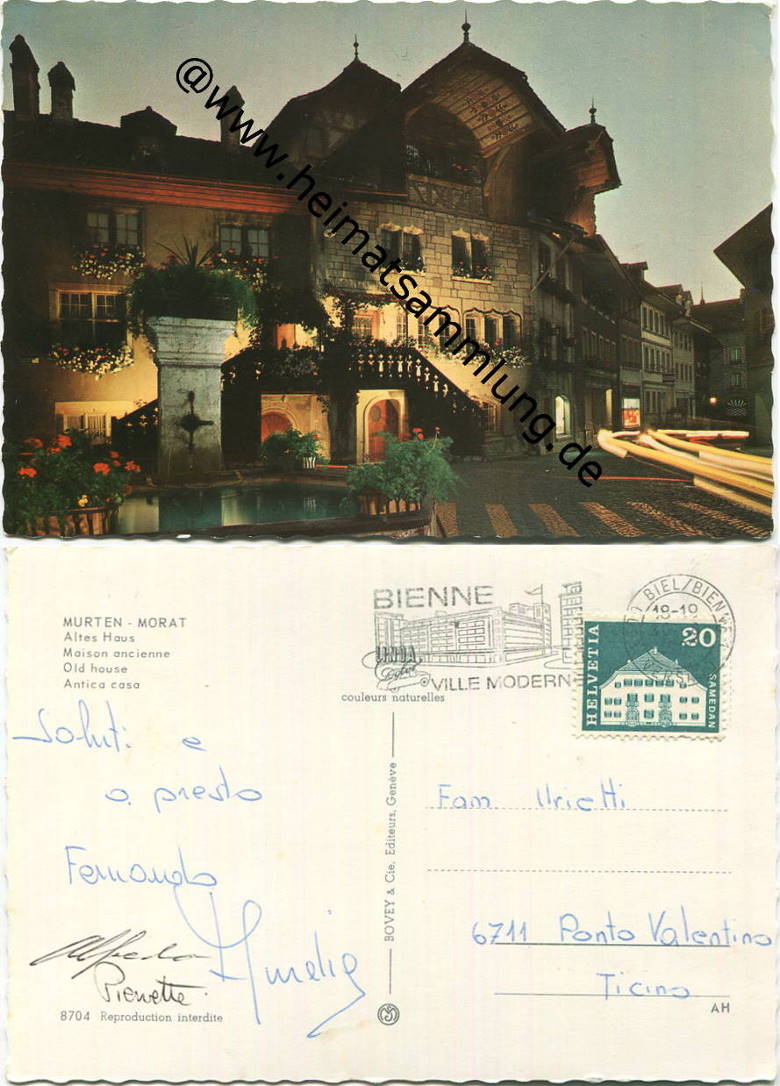 @www.heimatsammlung.de
MURTEN - MORAT
Altes Haus
Maison ancienne
Old house
Antica casa
BIENNE
VILLE MODERN
BIEL/BIENNE
18-19
HELVETIA
20
SAMEDAN
couleurs naturelles
Saluti e
a presto
Fernando
Alfredo
Pierrette
8704 Reproduction interdite
BOVEY & Cie, Editeurs, Genève
Fam
6711 Ponto Valentino
Ticino
AH